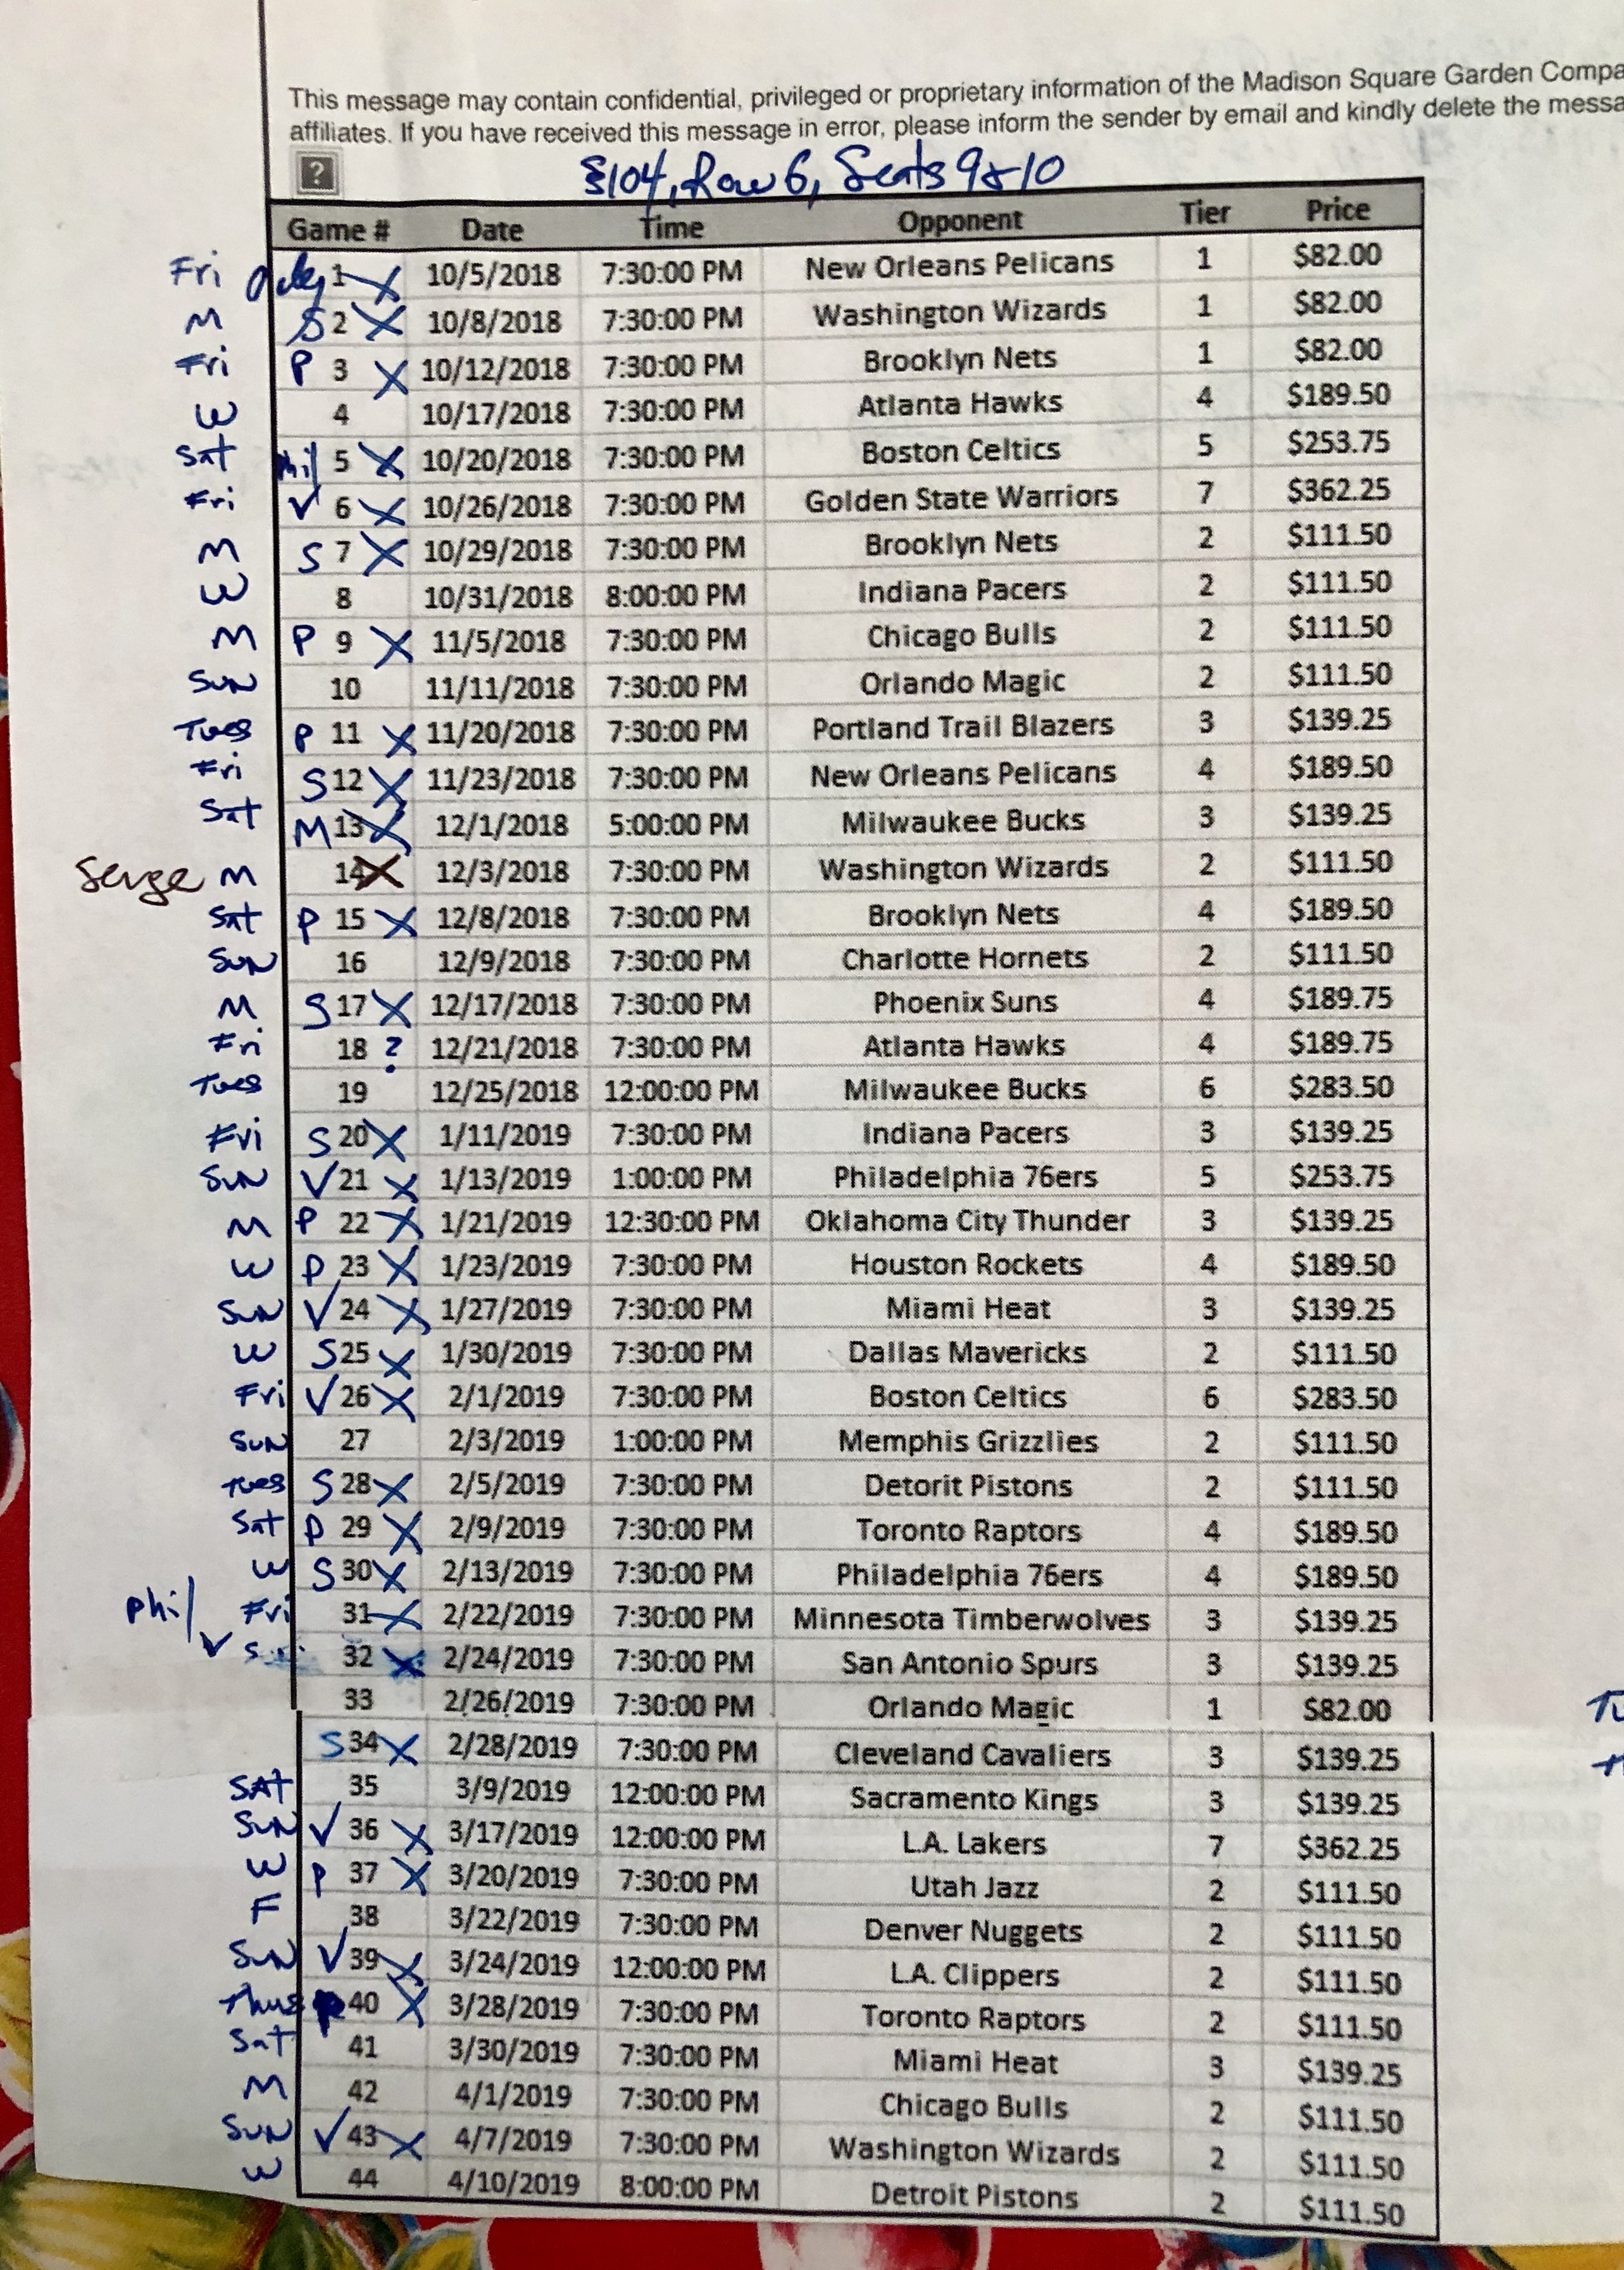 This message may contain confidential, privileged or proprietary information of the Madison Square Garden Compa
affiliates. If you have received this message in error, please inform the sender by email and kindly delete the messa
?
§104, Row 6, Seats 9&10
Game # Date Time Opponent Tier Price
Fri 1 X 10/5/2018 7:30:00 PM New Orleans Pelicans 1 $82.00
M S 2 X 10/8/2018 7:30:00 PM Washington Wizards 1 $82.00
Fri P 3 X 10/12/2018 7:30:00 PM Brooklyn Nets 1 $82.00
W 4 10/17/2018 7:30:00 PM Atlanta Hawks 4 $189.50
Sat Phil 5 X 10/20/2018 7:30:00 PM Boston Celtics 5 $253.75
Fri V 6 X 10/26/2018 7:30:00 PM Golden State Warriors 7 $362.25
M S 7 X 10/29/2018 7:30:00 PM Brooklyn Nets 2 $111.50
W 8 10/31/2018 8:00:00 PM Indiana Pacers 2 $111.50
M P 9 X 11/5/2018 7:30:00 PM Chicago Bulls 2 $111.50
Sun 10 11/11/2018 7:30:00 PM Orlando Magic 2 $111.50
Tues P 11 X 11/20/2018 7:30:00 PM Portland Trail Blazers 3 $139.25
Fri S 12 X 11/23/2018 7:30:00 PM New Orleans Pelicans 4 $189.50
Sat M 13 X 12/1/2018 5:00:00 PM Milwaukee Bucks 3 $139.25
Serge M 14 X 12/3/2018 7:30:00 PM Washington Wizards 2 $111.50
Sat P 15 X 12/8/2018 7:30:00 PM Brooklyn Nets 4 $189.50
Sun 16 12/9/2018 7:30:00 PM Charlotte Hornets 2 $111.50
M S 17 X 12/17/2018 7:30:00 PM Phoenix Suns 4 $189.75
Fri 18 ? 12/21/2018 7:30:00 PM Atlanta Hawks 4 $189.75
Tues 19 12/25/2018 12:00:00 PM Milwaukee Bucks 6 $283.50
Fri S 20 X 1/11/2019 7:30:00 PM Indiana Pacers 3 $139.25
Sun V 21 X 1/13/2019 1:00:00 PM Philadelphia 76ers 5 $253.75
M P 22 X 1/21/2019 12:30:00 PM Oklahoma City Thunder 3 $139.25
W P 23 X 1/23/2019 7:30:00 PM Houston Rockets 4 $189.50
Sun V 24 X 1/27/2019 7:30:00 PM Miami Heat 3 $139.25
W S 25 X 1/30/2019 7:30:00 PM Dallas Mavericks 2 $111.50
Fri V 26 X 2/1/2019 7:30:00 PM Boston Celtics 6 $283.50
Sun 27 2/3/2019 1:00:00 PM Memphis Grizzlies 2 $111.50
Tues S 28 X 2/5/2019 7:30:00 PM Detorit Pistons 2 $111.50
Sat P 29 X 2/9/2019 7:30:00 PM Toronto Raptors 4 $189.50
W S 30 X 2/13/2019 7:30:00 PM Philadelphia 76ers 4 $189.50
Phil Fri 31 X 2/22/2019 7:30:00 PM Minnesota Timberwolves 3 $139.25
V 32 X 2/24/2019 7:30:00 PM San Antonio Spurs 3 $139.25
33 2/26/2019 7:30:00 PM Orlando Magic 1 $82.00
S 34 X 2/28/2019 7:30:00 PM Cleveland Cavaliers 3 $139.25
SAt 35 3/9/2019 12:00:00 PM Sacramento Kings 3 $139.25
Sun V 36 X 3/17/2019 12:00:00 PM L.A. Lakers 7 $362.25
W P 37 X 3/20/2019 7:30:00 PM Utah Jazz 2 $111.50
F 38 3/22/2019 7:30:00 PM Denver Nuggets 2 $111.50
Sun V 39 X 3/24/2019 12:00:00 PM L.A. Clippers 2 $111.50
Thus P 40 X 3/28/2019 7:30:00 PM Toronto Raptors 2 $111.50
Sat 41 3/30/2019 7:30:00 PM Miami Heat 3 $139.25
M 42 4/1/2019 7:30:00 PM Chicago Bulls 2 $111.50
Sun V 43 X 4/7/2019 7:30:00 PM Washington Wizards 2 $111.50
W 44 4/10/2019 8:00:00 PM Detroit Pistons 2 $111.50